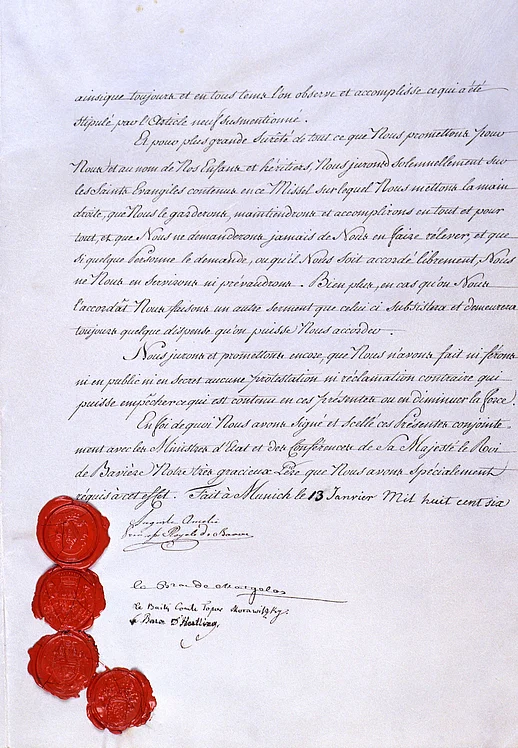 ainsique toujours et en tous tems l'on observe et accomplisse ce qui a été
stipulé par l'Article neuf susmentionné.
Et pour plus grande Sureté de tout ce que Nous promettons pour
Nous et au nom de Nos Enfans et héritiers, Nous jurons solemnellement sur
les Saints Evangiles contenus en ce Missel sur lequel Nous mettons la main
droite, que Nous le garderons, maintiendrons et accomplirons en tout et pour
tout, et que Nous ne demanderons jamais de Nous en faire relever, et que
si quelque Personne le demande, ou qu'il Nous soit accordé librement, Nous
ne Nous en servirons ni prévaudrons. Bien plus, en cas qu'on Nous
l'accordât Nous faisons un autre serment que celui ci subsistera et demeurera
toujours quelque dispense qu'on puisse Nous accorder.
Nous jurons et promettons encore, que Nous n'avons fait ni ferons
ni en public ni en secret aucune protestation ni réclamation contraire qui
puisse empêcher ce qui est contenu en ces présentes ou en diminuer la force.
En foi de quoi Nous avons signé et scellé ces Présentes conjointe-
ment avec les Ministres d'Etat et des Conférences de Sa Majesté le Roi
de Bavière Notre très gracieux Père que Nous avons spécialement
requis à cet effet. Fait à Munich le 13 Janvier Mil huit cent six
Auguste Amelie
Princesse Royale de Baviere
le Bon de Montgelas
Le Baili Comte Topor Morawitzky.
le Baron d'Hertling,